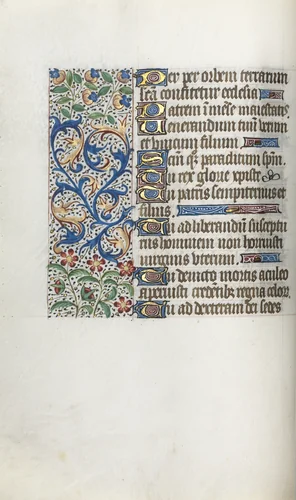 Te per orbem terrarum
sca confitetur ecclesia
Patrem imese maiestatis
Venerandum tuum verum
et unicum filium
Scm qz paraclitum spm
Tu rex glorie xpiste
Tu patris sempiternus et
filius
Tu ad liberandum susceptu
rus hominem non horruisti
virginis uterum
Tu devicto mortis aculeo
aperuisti credentibz regna celor
Tu ad dexteram dei sedes